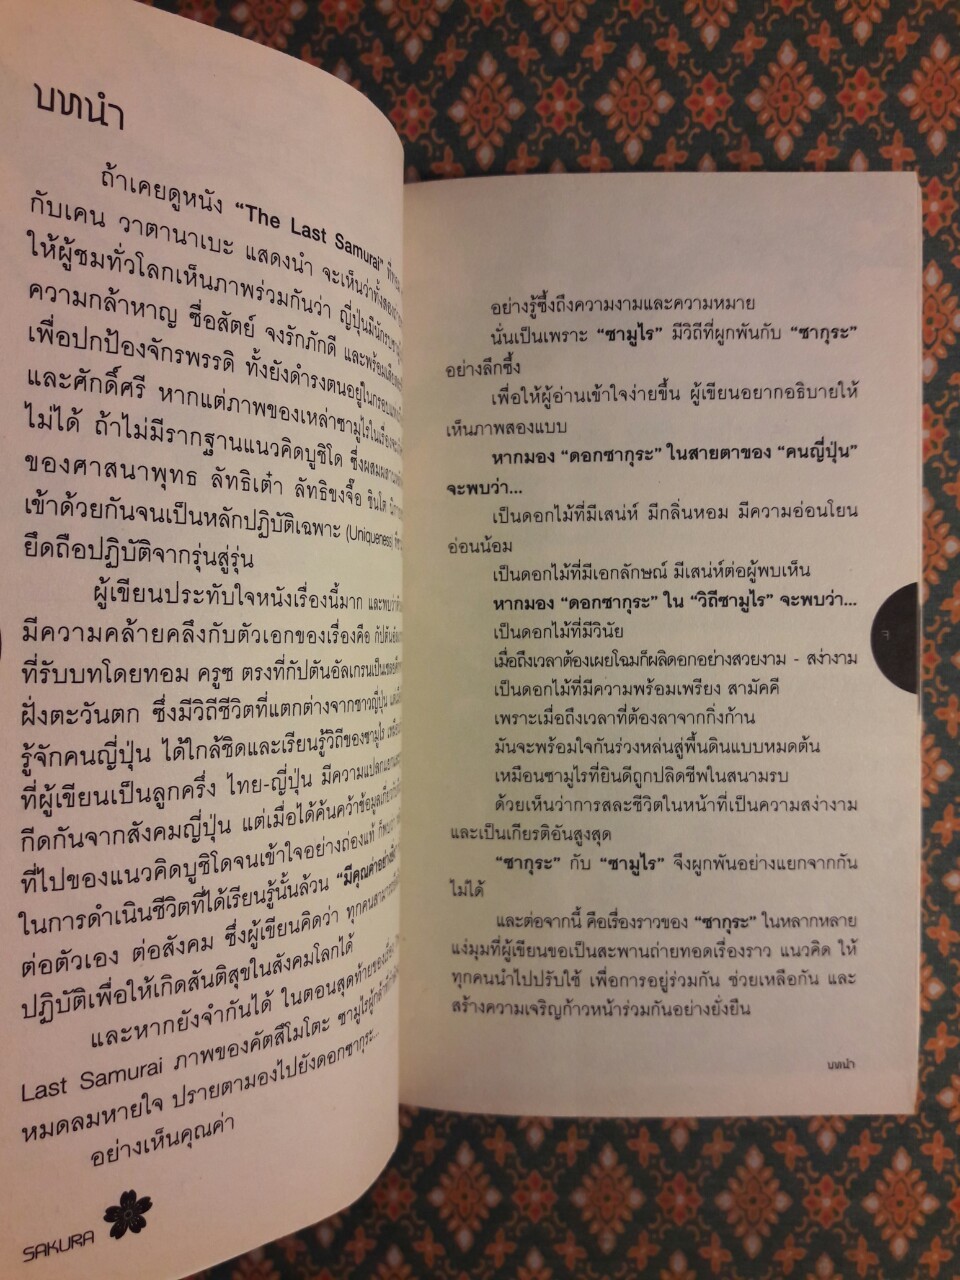 บทนำ
ถ้าเคยดูหนัง “The Last Samurai”
กับเคน วาตานาเบะ แสดงนำ จะเห็นว่าทั้งสอง
ให้ผู้ชมทั่วโลกเห็นภาพร่วมกันว่า ญี่ปุ่นมีนักรบ
ความกล้าหาญ ซื่อสัตย์ จงรักภักดี และพร้อม
เพื่อปกป้องจักรพรรดิ ทั้งยังดำรงตนอยู่ในกรอบ
และศักดิ์ศรี หากแต่ภาพของเหล่าซามูไรในเรื่อง
ไม่ได้ ถ้าไม่มีรากฐานแนวคิดบูชิโด ซึ่งผสมผสาน
ของศาสนาพุทธ ลัทธิเต๋า ลัทธิขงจื๊อ ชินโต
เข้าด้วยกันจนเป็นหลักปฏิบัติเฉพาะ (Uniqueness)
ยึดถือปฏิบัติจากรุ่นสู่รุ่น
ผู้เขียนประทับใจหนังเรื่องนี้มาก และพบว่า
มีความคล้ายคลึงกับตัวเอกของเรื่องคือ กัปตัน
ที่รับบทโดยทอม ครูซ ตรงที่กัปตันอัลเกรนเป็น
ฝั่งตะวันตก ซึ่งมีวิถีชีวิตที่แตกต่างจากชาวญี่ปุ่น
รู้จักคนญี่ปุ่น ได้ใกล้ชิดและเรียนรู้วิถีของซามูไร
ที่ผู้เขียนเป็นลูกครึ่ง ไทย-ญี่ปุ่น มีความแปลกแยก
กีดกันจากสังคมญี่ปุ่น แต่เมื่อได้ค้นคว้าข้อมูลเกี่ยวกับ
ที่ไปของแนวคิดบูชิโดจนเข้าใจอย่างถ่องแท้
ในการดำเนินชีวิตที่ได้เรียนรู้นั้นล้วน “มีคุณค่าอย่าง
ต่อตัวเอง ต่อสังคม ซึ่งผู้เขียนคิดว่า ทุกคนสามารถ
ปฏิบัติเพื่อให้เกิดสันติสุขในสังคมโลกได้
และหากยังจำกันได้ ในตอนสุดท้ายของเรื่อง
Last Samurai ภาพของคัตสึโมโตะ ซามูไรผู้กล้า
หมดลมหายใจ ปรายตามองไปยังดอกซากุระ...
อย่างเห็นคุณค่า
SAKURA
อย่างรู้ซึ้งถึงความงามและความหมาย
นั่นเป็นเพราะ “ซามูไร” มีวิถีที่ผูกพันกับ “ซากุระ”
อย่างลึกซึ้ง
เพื่อให้ผู้อ่านเข้าใจง่ายขึ้น ผู้เขียนอยากอธิบายให้
เห็นภาพสองแบบ
หากมอง “ดอกซากุระ” ในสายตาของ “คนญี่ปุ่น”
จะพบว่า...
เป็นดอกไม้ที่มีเสน่ห์ มีกลิ่นหอม มีความอ่อนโยน
อ่อนน้อม
เป็นดอกไม้ที่มีเอกลักษณ์ มีเสน่ห์ต่อผู้พบเห็น
หากมอง “ดอกซากุระ” ใน “วิถีซามูไร” จะพบว่า...
เป็นดอกไม้ที่มีวินัย
เมื่อถึงเวลาต้องเผยโฉมก็ผลิดอกอย่างสวยงาม - สง่างาม
เป็นดอกไม้ที่มีความพร้อมเพรียง สามัคคี
เพราะเมื่อถึงเวลาที่ต้องลาจากกิ่งก้าน
มันจะพร้อมใจกันร่วงหล่นสู่พื้นดินแบบหมดต้น
เหมือนซามูไรที่ยินดีถูกปลิดชีพในสนามรบ
ด้วยเห็นว่าการสละชีวิตในหน้าที่เป็นความสง่างาม
และเป็นเกียรติอันสูงสุด
“ซากุระ” กับ “ซามูไร” จึงผูกพันอย่างแยกจากกัน
ไม่ได้
และต่อจากนี้ คือเรื่องราวของ “ซากุระ” ในหลากหลาย
แง่มุมที่ผู้เขียนขอเป็นสะพานถ่ายทอดเรื่องราว แนวคิด ให้
ทุกคนนำไปปรับใช้ เพื่อการอยู่ร่วมกัน ช่วยเหลือกัน และ
สร้างความเจริญก้าวหน้าร่วมกันอย่างยั่งยืน
บทนำ